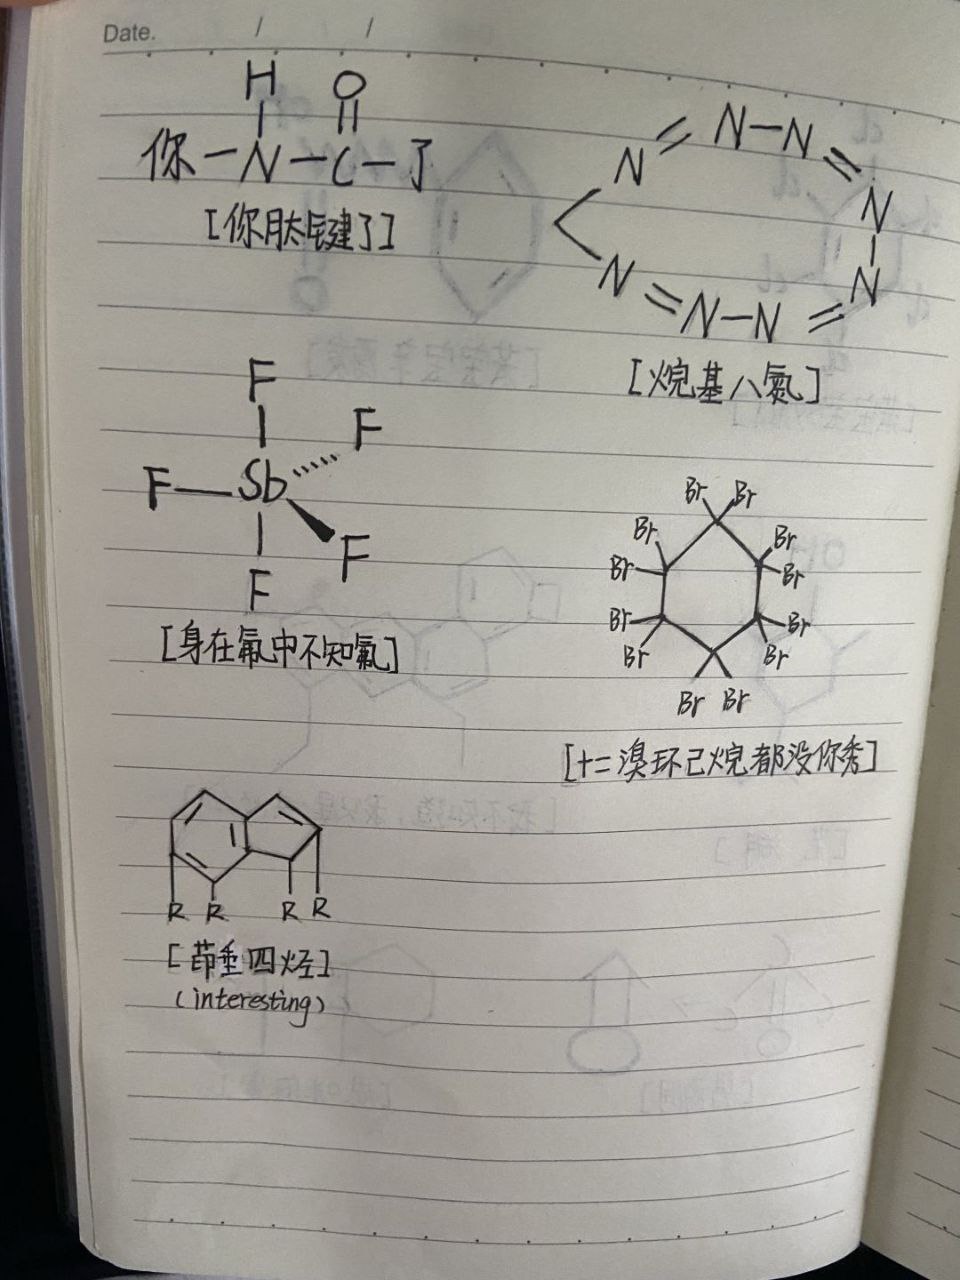 Date. / /
H O
你-N-C-了
[你肽键了]
N=N-N=N
N=N-N=N
[烷基八氮]
F
F
F-Sb
F
F
[身在氟中不知氟]
Br Br
Br Br
Br Br
Br Br
Br Br
Br Br
[十二溴环己烷都没你秀]
R R R R
[茚垂四烃]
(interesting)